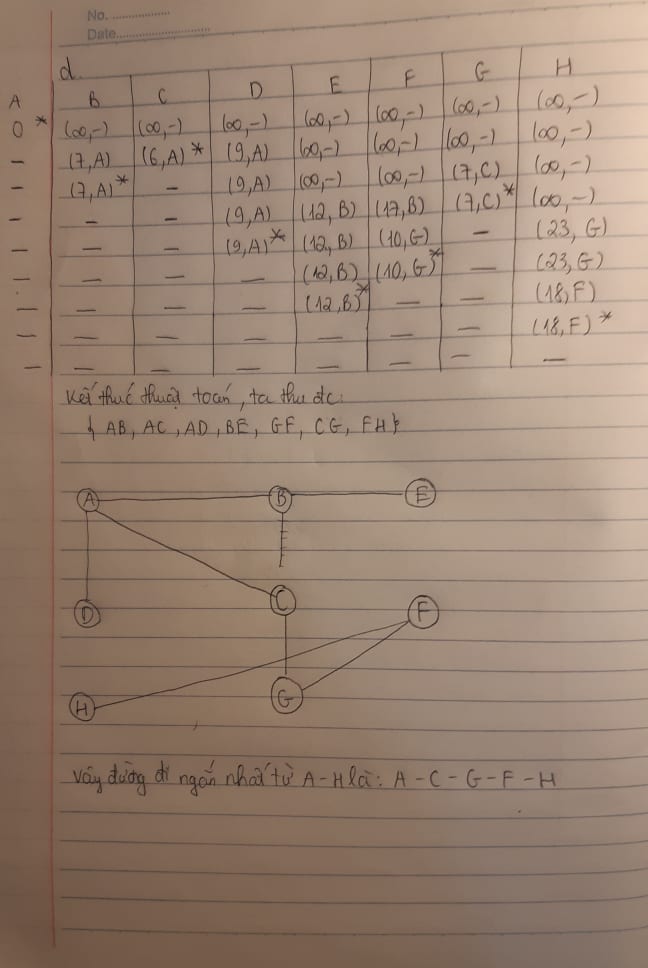 No. ................
Date............................
d.
A B C D E F G H
0 * (∞,-) (∞,-) (∞,-) (∞,-) (∞,-) (∞,-) (∞,-)
– (7,A) (6,A) * (9,A) (∞,-) (∞,-) (∞,-) (∞,-)
– (7,A) * – (9,A) (∞,-) (∞,-) (7,C) (∞,-)
– – – (9,A) (12,B) (17,B) (7,C) * (∞,-)
– – – (9,A) * (12,B) (10,G) – (23,G)
– – – – (12,B) (10,G) * – (23,G)
– – – – (12,B) * – – (18,F)
– – – – – – – (18,F) *
– – – – – – – –
Kết thúc thuật toán, ta thu đc:
{ AB, AC, AD, BE, GF, CG, FH }
A B E
D C F
H G
Vậy đường đi ngắn nhất từ A-H là: A - C - G - F - H